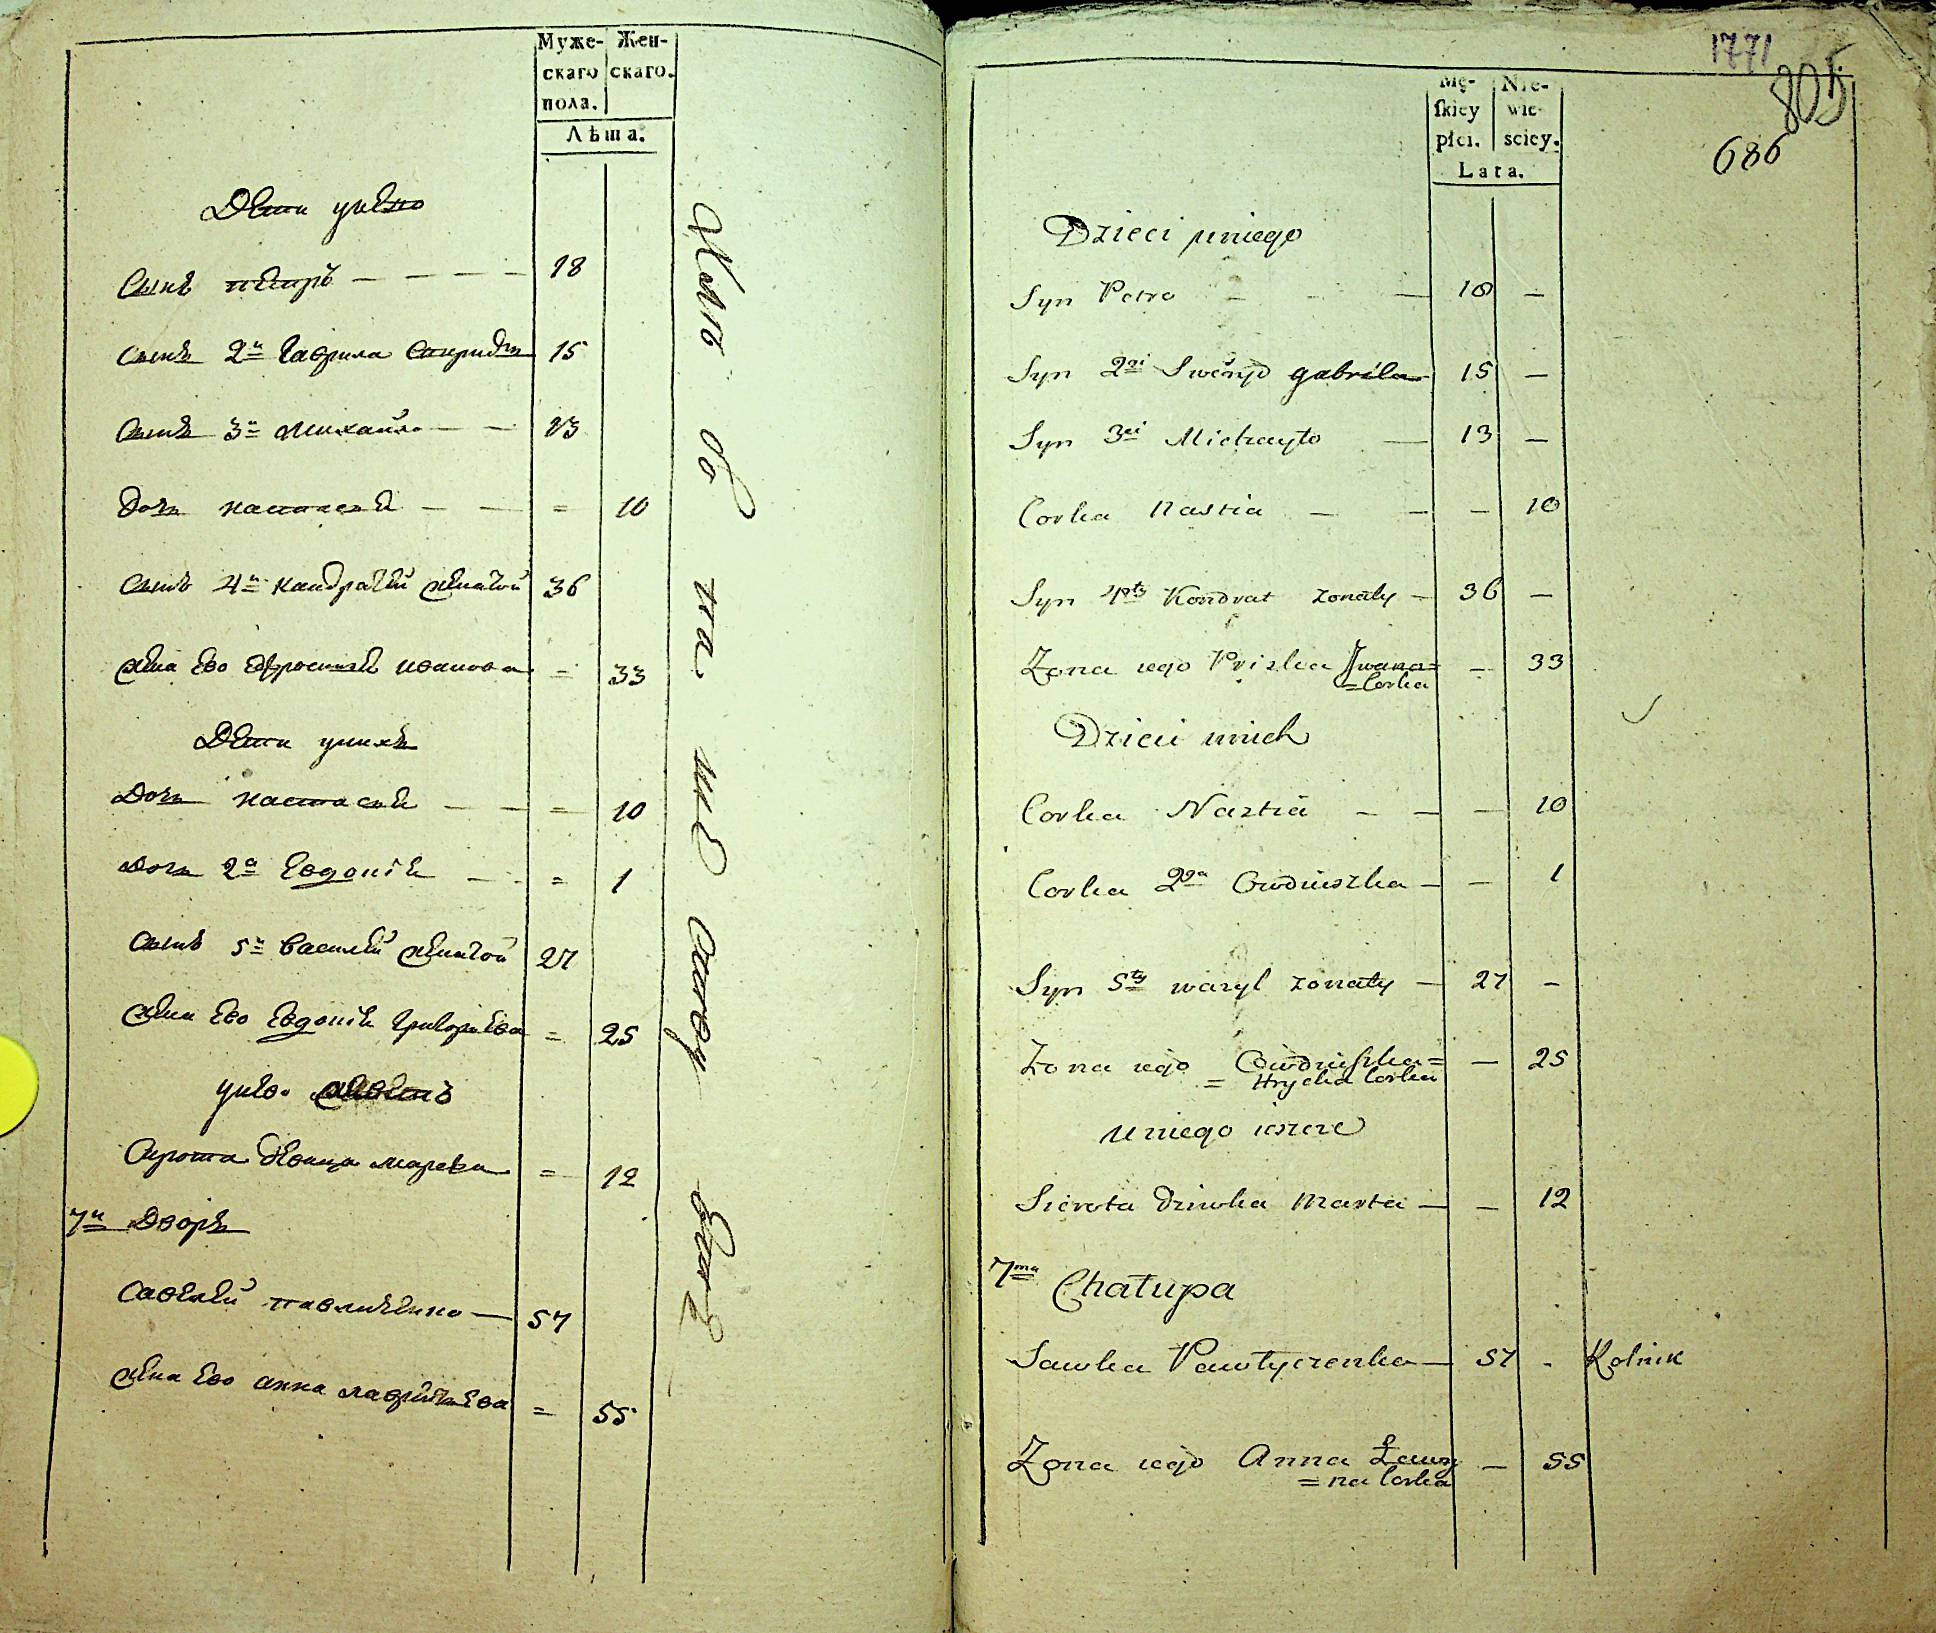 Муже-
скаго
пола.
Жен-
скаго.
Лѣта.
Дети унево
Сынъ петръ 18
Сынъ 2й Гаврила 15
Сынъ 3й Михайло 13
Дочь настасея = 10
Сынъ 4й Кандратей женатой 36
Жена ево Ефросинья иванова = 33
Дети унихъ
Дочь настасья = 10
Дочь 2я Евдокия = 1
Сынъ 5й Василей женатой 27
Жена ево Евдокия Григорьева = 25
унево живетъ
Сирота девица марфа = 12
7й Дворъ
Савелей павличенко 57
Жена ево анна = 55
1771
805
686
Mę-
skiey
płci.
Nie-
wie-
sciey.
Lata.
Dzieci uniego
Syn Petro 18 —
Syn 2gi gabrila 15 —
Syn 3ci Michayło 13 —
Corka Nastia — 10
Syn 4ty Kondrat zonaty 36 —
Zona iego Priska Iwana= — 33
=Corka
Dzieci unich
Corka Nastia — 10
Corka 2ga Owduszka — 1
Syn 5ty wazyl zonaty 27 —
Zona iego Owduszka= — 25
= Hrycka Corka
uniego ieszcze
Sierota Dziwka Marta — 12
7ma Chałupa
Sawka Pawłyczenko 57 - Rolnik
Zona iego Anna Ławry — 55
=na Corka